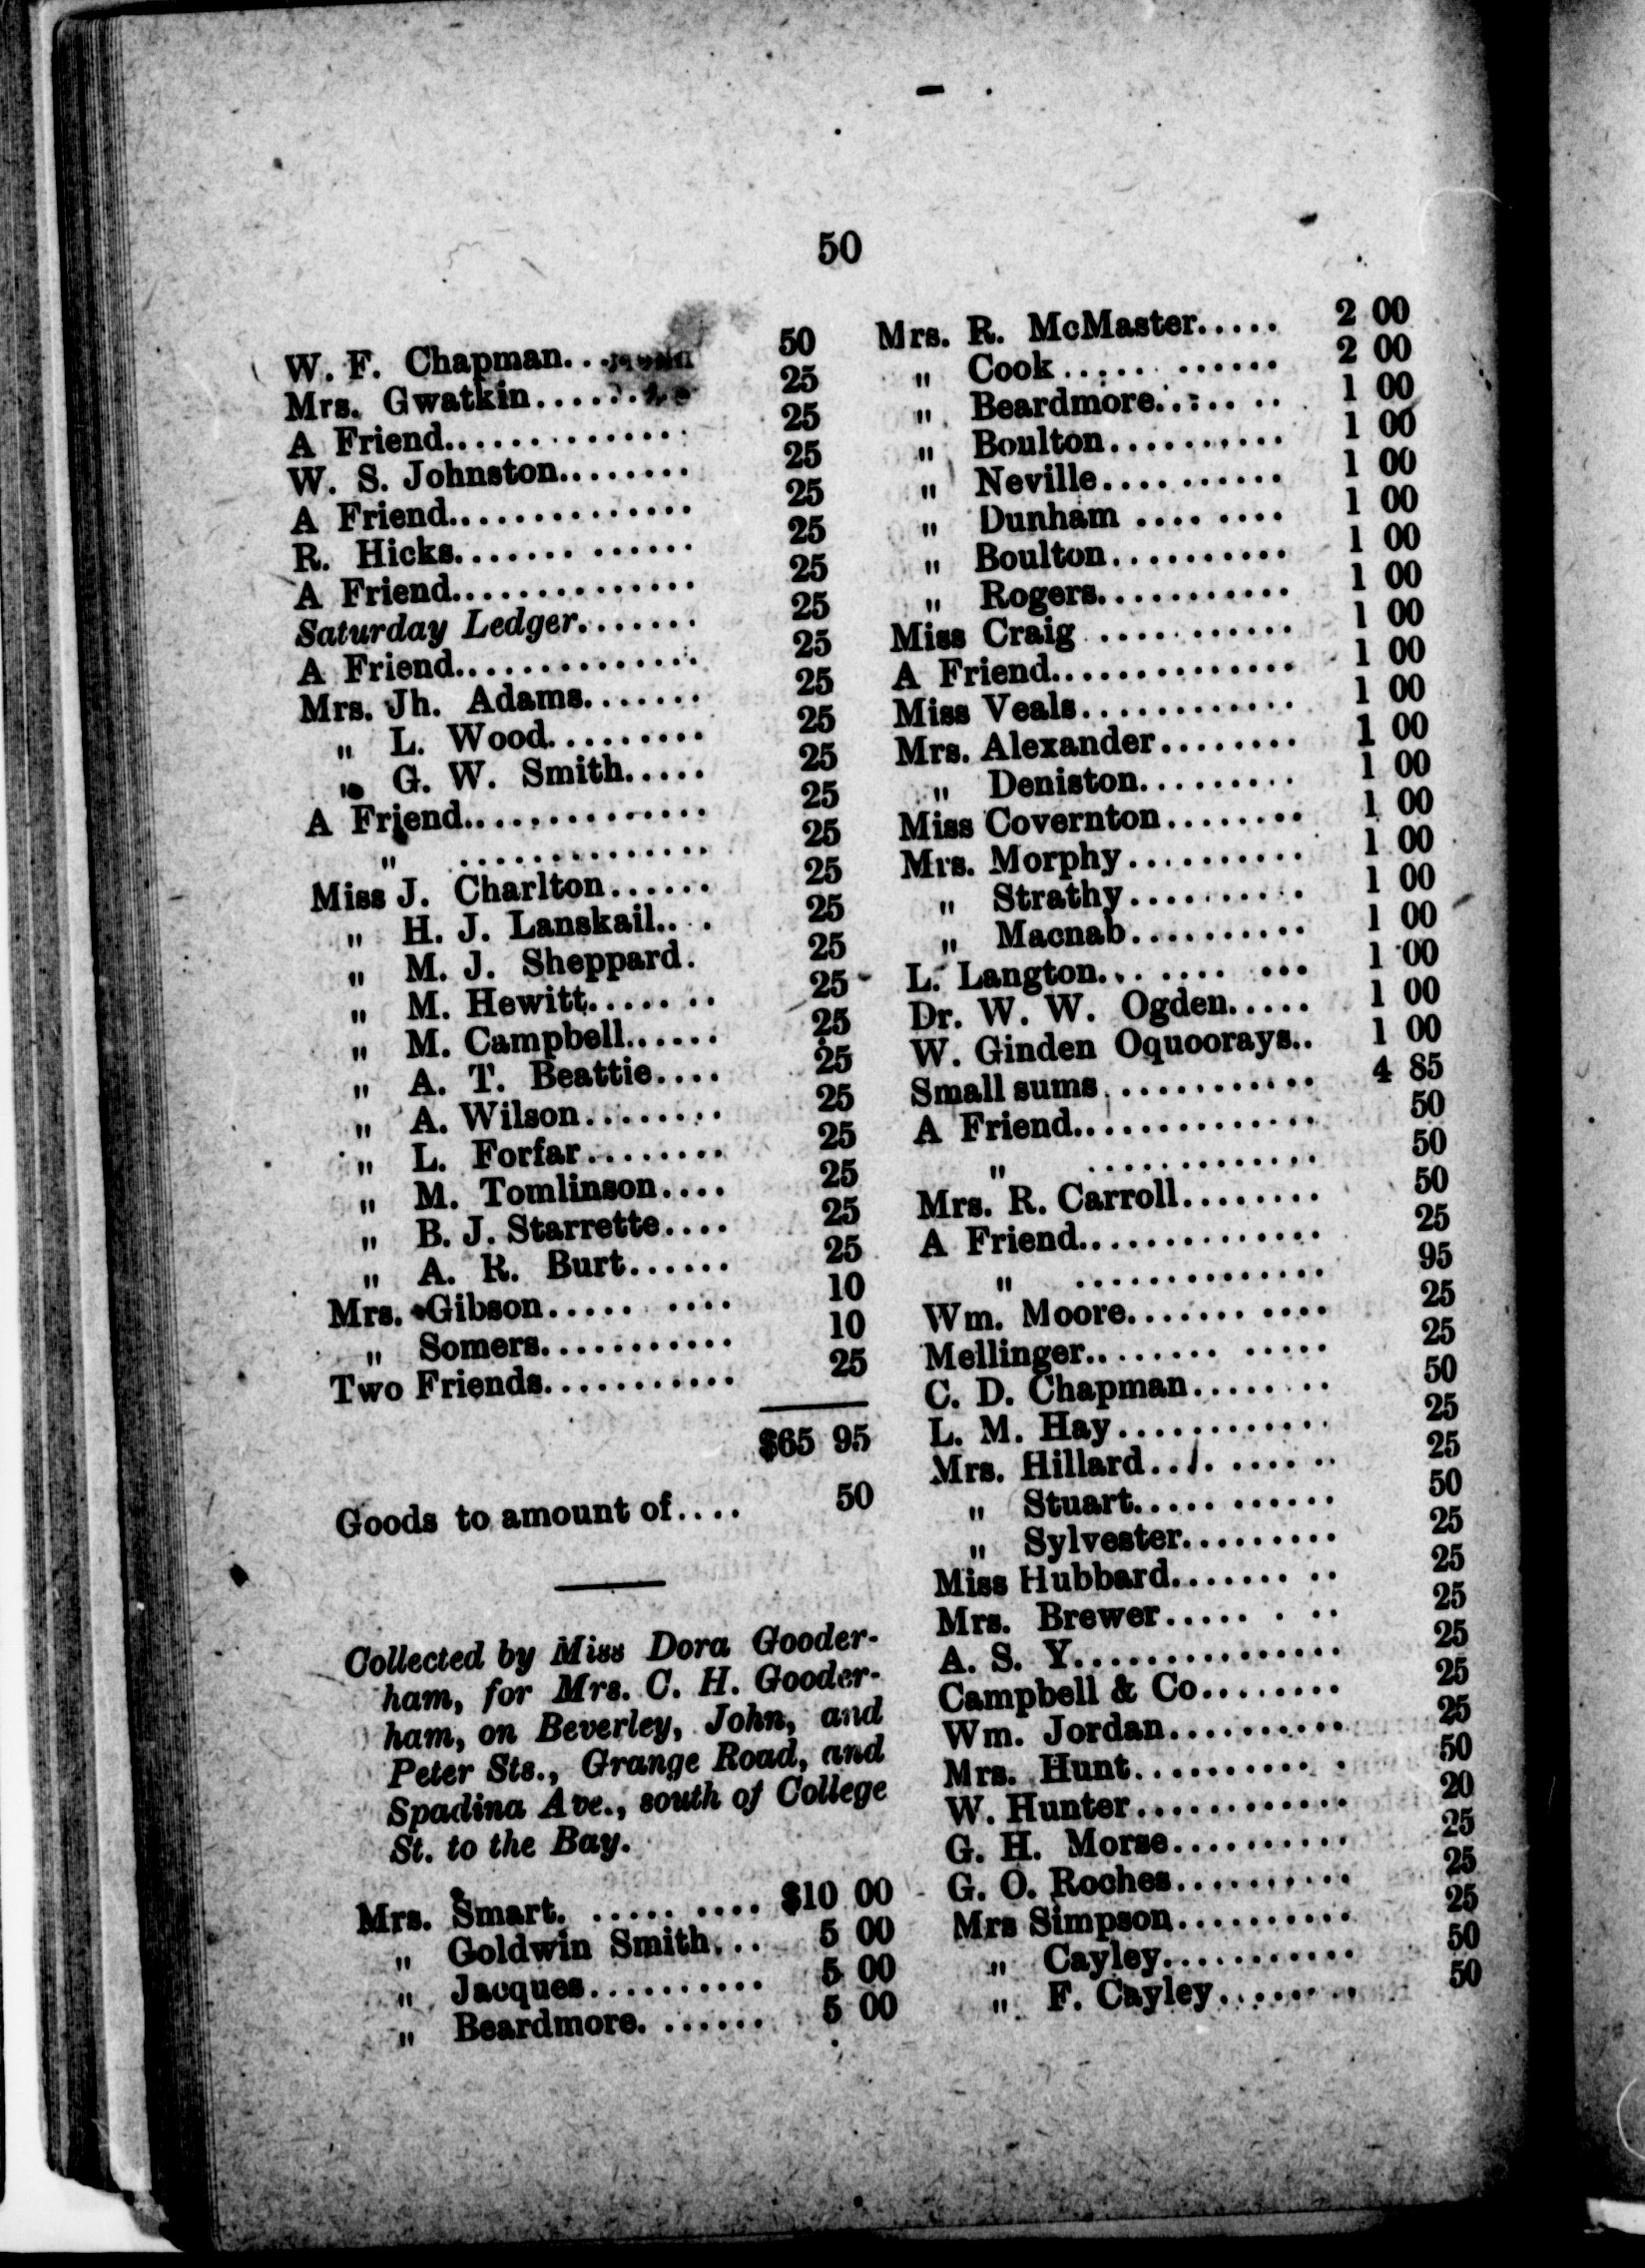 50
W. F. Chapman.. 50
Mrs. Gwatkin...... 25
A Friend.............. 25
W. S. Johnston........ 25
A Friend.............. 25
R. Hicks....... ...... 25
A Friend.............. 25
Saturday Ledger....... 25
A Friend.............. 25
Mrs. Jh. Adams....... 25
" L. Wood.......... 25
" G. W. Smith..... 25
A Friend.............. 25
" .............. 25
Miss J. Charlton...... 25
" H. J. Lanskail.. . 25
" M. J. Sheppard. 25
" M. Hewitt....... 25
" M. Campbell...... 25
" A. T. Beattie.... 25
" A. Wilson........ 25
" L. Forfar........ 25
" M. Tomlinson.... 25
" B. J. Starrette.... 25
" A. R. Burt...... 25
Mrs. Gibson..... .... 10
" Somers........... 10
Two Friends........... 25
$65 95
Goods to amount of.... 50
Collected by Miss Dora Gooder-
ham, for Mrs. C. H. Gooder-
ham, on Beverley, John, and
Peter Sts., Grange Road, and
Spadina Ave., south of College
St. to the Bay.
Mrs. Smart. ..... .... $10 00
" Goldwin Smith... 5 00
" Jacques.......... 5 00
" Beardmore. ...... 5 00
Mrs. R. McMaster..... 2 00
" Cook..... ...... 2 00
" Beardmore..... .. 1 00
" Boulton.......... 1 00
" Neville.... ...... 1 00
" Dunham .... .... 1 00
" Boulton.......... 1 00
" Rogers........... 1 00
Miss Craig ........... 1 00
A Friend.............. 1 00
Miss Veals............ 1 00
Mrs. Alexander........ 1 00
" Deniston......... 1 00
Miss Covernton........ 1 00
Mrs. Morphy.......... 1 00
" Strathy.......... 1 00
" Macnab.......... 1 00
L. Langton.. .... ... 1 00
Dr. W. W. Ogden..... 1 00
W. Ginden Oquoorays.. 1 00
Small sums ........... 4 85
A Friend.............. 50
" ............. 50
Mrs. R. Carroll........ 50
A Friend.............. 25
" .............. 95
Wm. Moore....... .... 25
Mellinger........ ..... 25
C. D. Chapman........ 50
L. M. Hay............ 25
Mrs. Hillard... .... .. 25
" Stuart..... ...... 50
" Sylvester......... 25
Miss Hubbard....... .. 25
Mrs. Brewer..... . .. 25
A. S. Y............... 25
Campbell & Co........ 25
Wm. Jordan.......... 25
Mrs. Hunt.......... . 50
W. Hunter............ 20
G. H. Morse.......... 25
G. O. Roches.......... 25
Mrs Simpson.......... 25
" Cayley........... 50
" F. Cayley........ 50